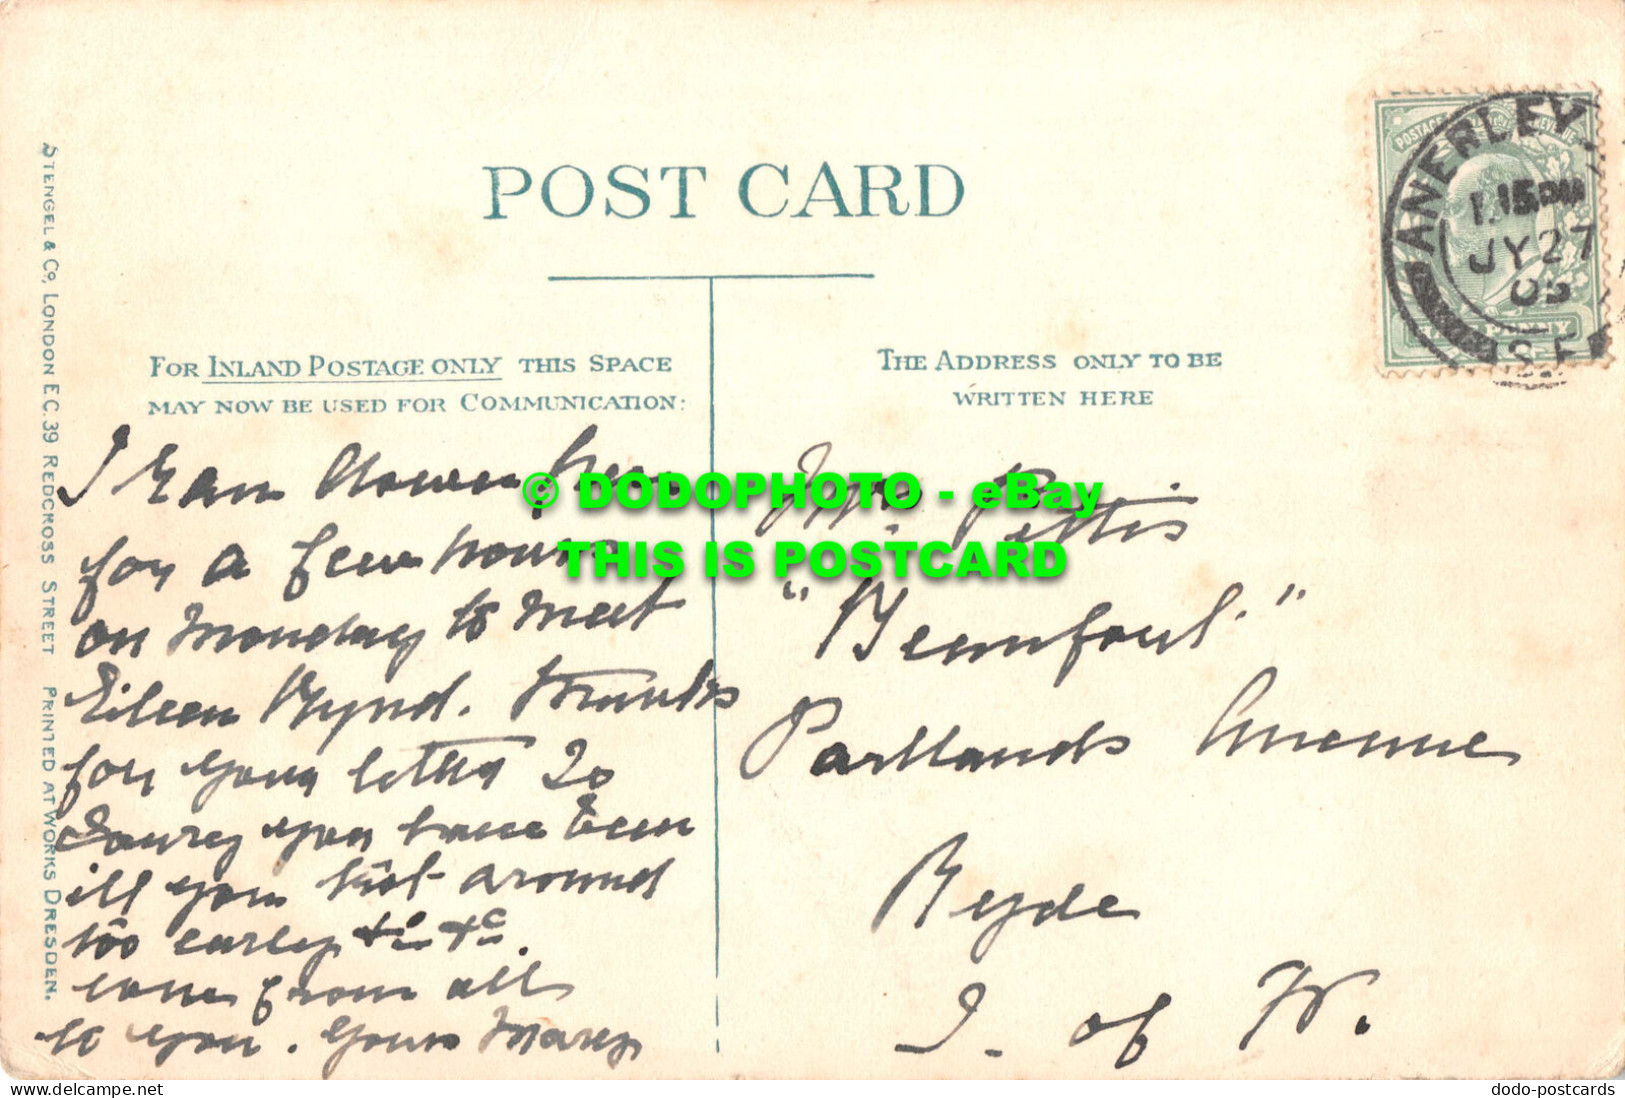 POST CARD
FOR INLAND POSTAGE ONLY THIS SPACE
MAY NOW BE USED FOR COMMUNICATION:
THE ADDRESS ONLY TO BE
WRITTEN HERE
STENGEL & Co., LONDON E.C. 39 REDCROSS STREET PRINTED AT WORKS DRESDEN.
ANERLEY
15 PM
JY 27
S.E.
POSTAGE REVENUE
I ran down here
for a few hours
on Monday to meet
Eileen Wynd. Thanks
for your letter So
Sorry you have been
ill you trot around
too early &c &c.
love from all
to you. Yours Mary
Pettis
Partlands Avenue
Ryde
I. of W.
© DODOPHOTO - eBay
THIS IS POSTCARD
www.delcampe.net
dodo-postcards